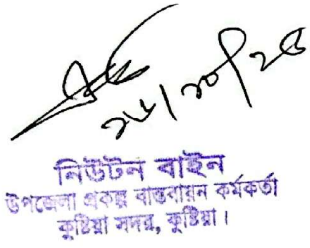 ২৬/১০/২৫
নিউটন বাইন
উপজেলা প্রকল্প বাস্তবায়ন কর্মকর্তা
কুষ্টিয়া সদর, কুষ্টিয়া।